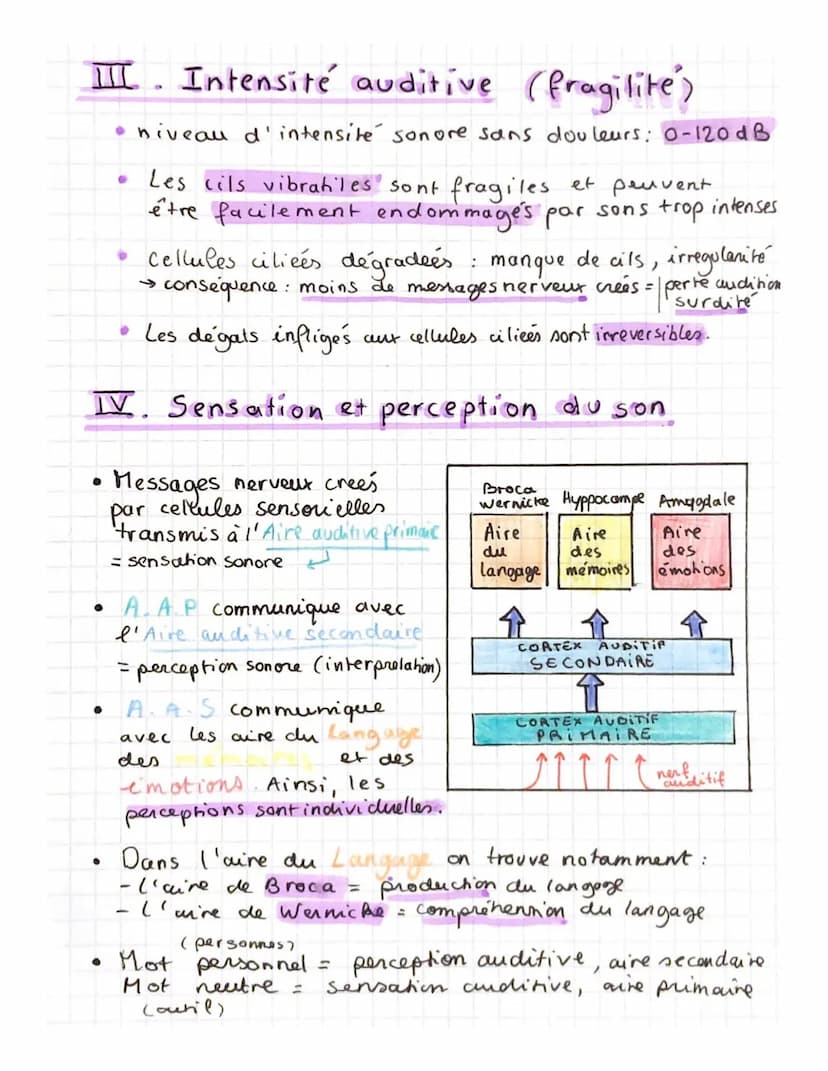 III. Intensité auditive (fragilité)
• niveau d'intensité sonore sans douleurs : 0-120 dB
• Les cils vibratiles sont fragiles et peuvent
être facilement endommagés par sons trop intenses
• cellules ciliées dégradées : manque de cils, irrégularité
→ conséquence : moins de messages nerveux créés = perte audition
surdité
• Les dégats infligés aux cellules ciliées sont irreversibles.
IV. Sensation et perception du son
• Messages nerveux créés
par cellules sensorielles
transmis à l'Aire auditive primaire
= sensation sonore
• A.A.P communique avec
l'Aire auditive secondaire
= perception sonore (interprétation)
• A.A.S communique
avec les aire du langage
des mémoires et des
émotions. Ainsi, les
perceptions sont individuelles.
Broca
Wernicke Hyppocampe Amygdale
Aire
du
langage
Aire
des
mémoires
Aire
des
émotions
CORTEX AUDITIF
SECONDAIRE
CORTEX AUDITIF
PRIMAIRE
nerf
auditif
• Dans l'aire du Langage on trouve notamment :
- L'aire de Broca = production du langage
- L'aire de Wernicke = compréhension du langage
(personnes)
• Mot personnel = perception auditive, aire secondaire
Mot neutre = sensation auditive, aire primaire
(outil)